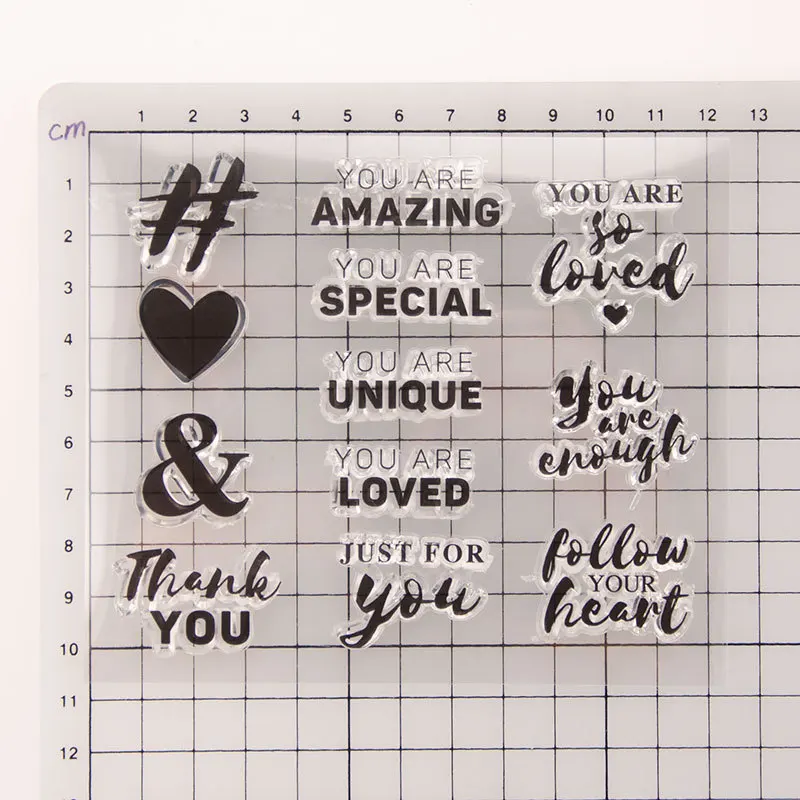 cm
1 2 3 4 5 6 7 8 9 10 11 12 13
1
2
3
4
5
6
7
8
9
10
11
12
#
&
Thank
YOU
YOU ARE
AMAZING
YOU ARE
SPECIAL
YOU ARE
UNIQUE
YOU ARE
LOVED
JUST FOR
you
YOU ARE
so
loved
You
are
enough
follow
YOUR
heart